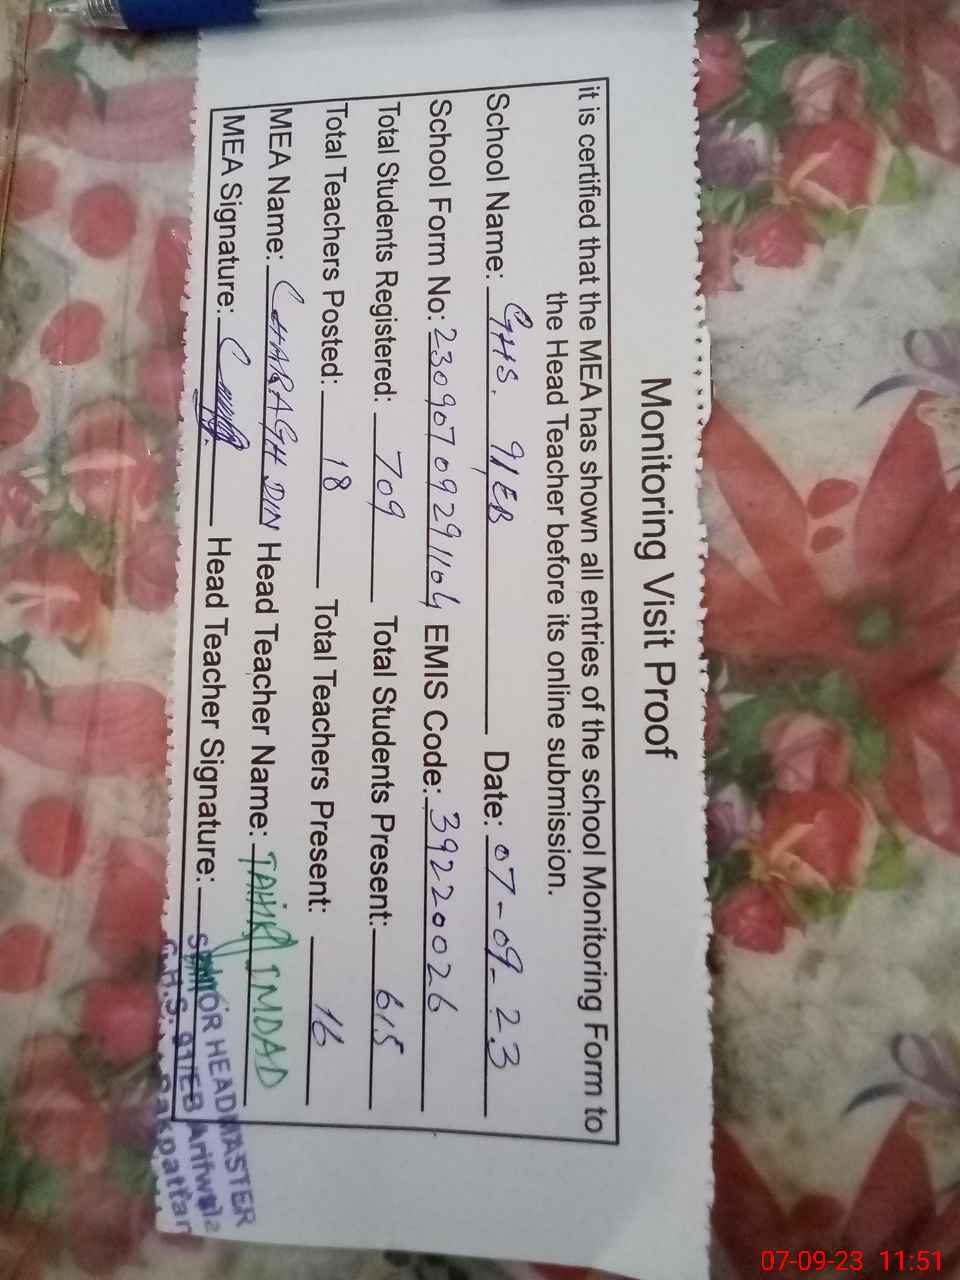 Monitoring Visit Proof
it is certified that the MEA has shown all entries of the school Monitoring Form to
the Head Teacher before its online submission.
School Name: GHS. 91/EB Date: 07-09-23
School Form No: 23090709291104 EMIS Code: 39220026
Total Students Registered: 709 Total Students Present: 615
Total Teachers Posted: 18 Total Teachers Present: 16
MEA Name: CHARAGH DIN Head Teacher Name: TAHIR IMDAD
MEA Signature: Head Teacher Signature:
SENIOR HEADMASTER
G.H.S. 91/EB Arifwala
Pakpattan
07-09-23 11:51